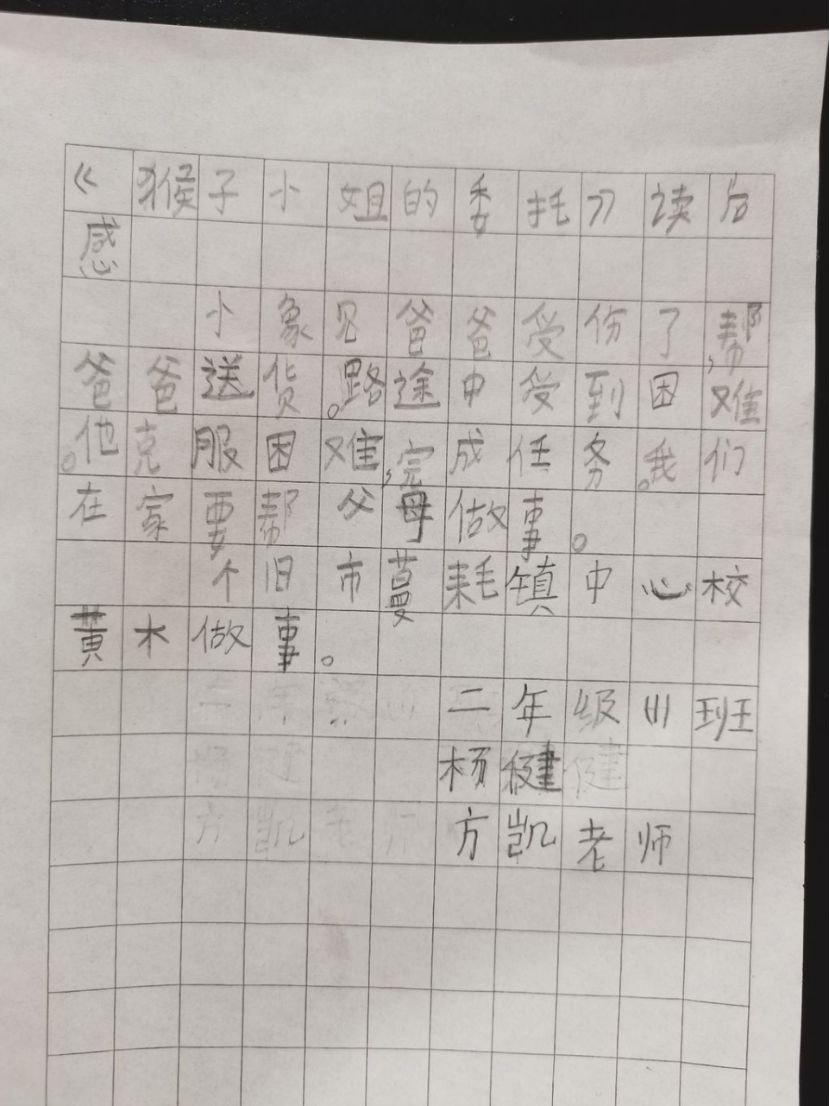 《猴子小姐的委托》读后
感
小象见爸爸受伤了,帮
爸爸送货。路途中受到困难
。他克服困难,完成任务。我们
在家要帮父母做事。
个旧市蔓耗镇中心校
黄木做事。
二年级(1)班
杨健
方凯老师